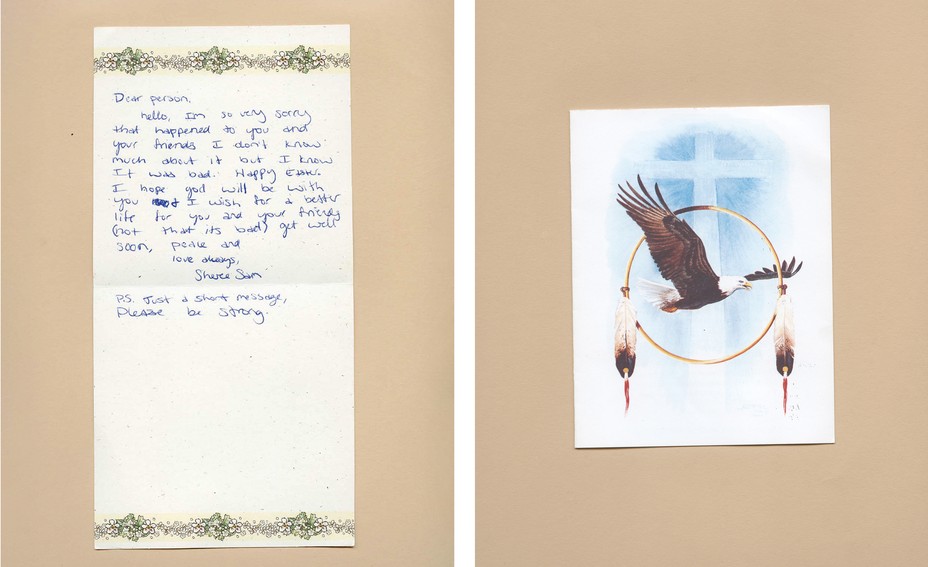 Dear person,
hello, Im so very sorry
that happened to you and
your friends I don't know
much about it but I know
It was bad. Happy Easter.
I hope god will be with
you I wish for a better
life for you and your friends
(not that its bad) get well
soon, peace and
love always,
Sheree Sam
P.S. Just a short message,
Please be strong.